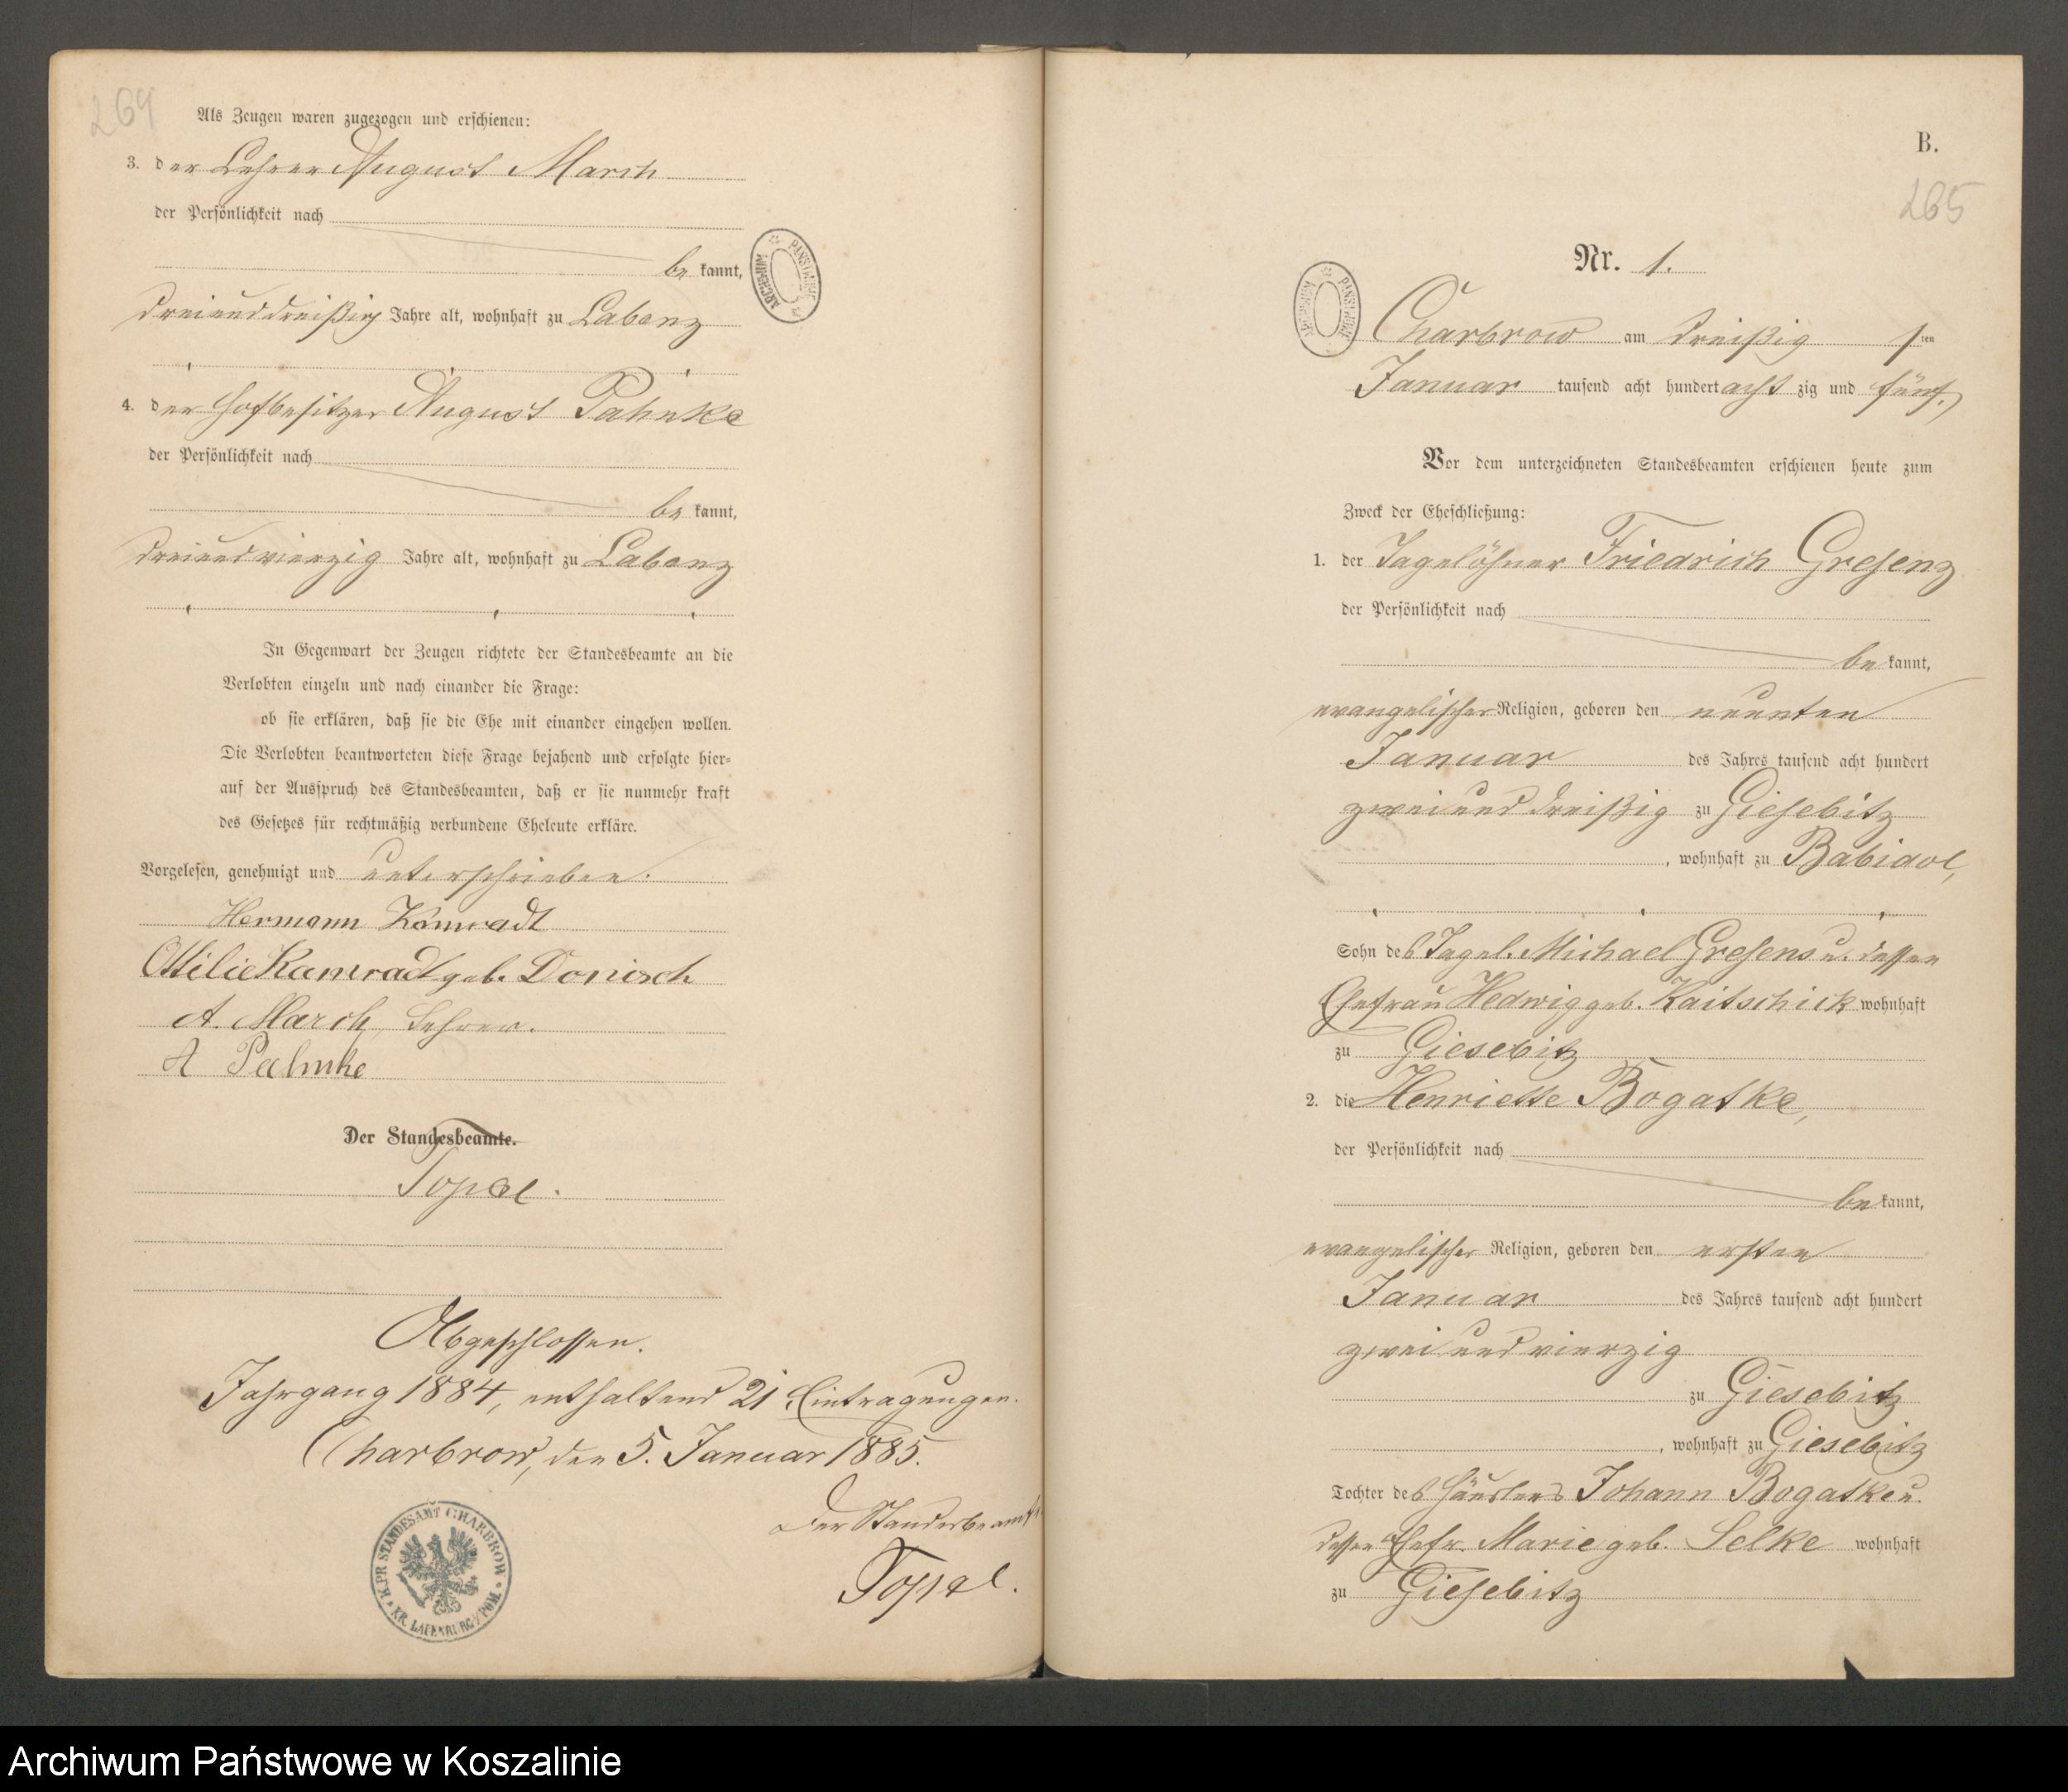 264
Als Zeugen waren zugezogen und erschienen:
3. der Lehrer August March
der Persönlichkeit nach
be kannt,
dreiunddreißig Jahre alt, wohnhaft zu Labenz
4. der Hofbesitzer August Pahnke
der Persönlichkeit nach
be kannt,
dreiundvierzig Jahre alt, wohnhaft zu Labenz
In Gegenwart der Zeugen richtete der Standesbeamte an die
Verlobten einzeln und nach einander die Frage:
ob sie erklären, daß sie die Ehe mit einander eingehen wollen.
Die Verlobten beantworteten diese Frage bejahend und erfolgte hier-
auf der Ausspruch des Standesbeamten, daß er sie nunmehr kraft
des Gesetzes für rechtmäßig verbundene Eheleute erkläre.
Vorgelesen, genehmigt und unterschrieben.
Hermann Kamradt
Ottilie Kamradt geb. Donisch
A. March, Lehrer.
A Pahnke
Der Standesbeamte.
Topel.
Abgeschlossen.
Jahrgang 1884, enthaltend 21 Eintragungen.
Charbrow, den 5. Januar 1885.
Der Standesbeamte
Topel.
K. PR STANDESAMT CHARBROW
KR. LAUENBURG I/POM.
ARCHIWUM PAŃSTWOWE
B.
265
Nr. 1.
ARCHIWUM PAŃSTWOWE
Charbrow am dreißig sten
Januar tausend acht hundert acht zig und fünf.
Vor dem unterzeichneten Standesbeamten erschienen heute zum
Zweck der Eheschließung:
1. der Tagelöhner Friedrich Gresenz
der Persönlichkeit nach
be kannt,
evangelischer Religion, geboren den neunten
Januar des Jahres tausend acht hundert
zweiunddreißig zu Giesebitz
, wohnhaft zu Babidol,
Sohn des Tagel. Michael Gresens u. dessen
Ehefrau Hedwig geb. Kaitschick wohnhaft
zu Giesebitz
2. die Henriette Bogatke,
der Persönlichkeit nach
be kannt,
evangelischer Religion, geboren den ersten
Januar des Jahres tausend acht hundert
zweiundvierzig
zu Giesebitz
, wohnhaft zu Giesebitz
Tochter des Häuslers Johann Bogatke u.
dessen Ehefr. Marie geb. Selke wohnhaft
zu Giesebitz
Archiwum Państwowe w Koszalinie